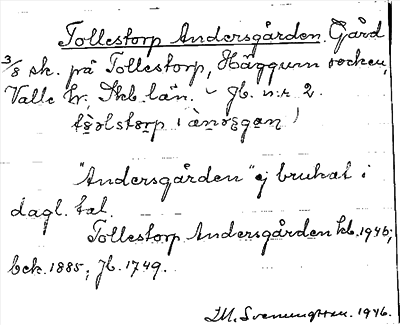 Tollestorp Andersgården. Gård
3/8 sk. på Tollestorp, Häggum socken,
Valle hr, Skb. län. – Jb. n:r 2.
"Andersgården" ej brukat i
dagl. tal.
Tollestorp Andersgården kb. 1946;
bck. 1885; Jb. 1749.
1946.